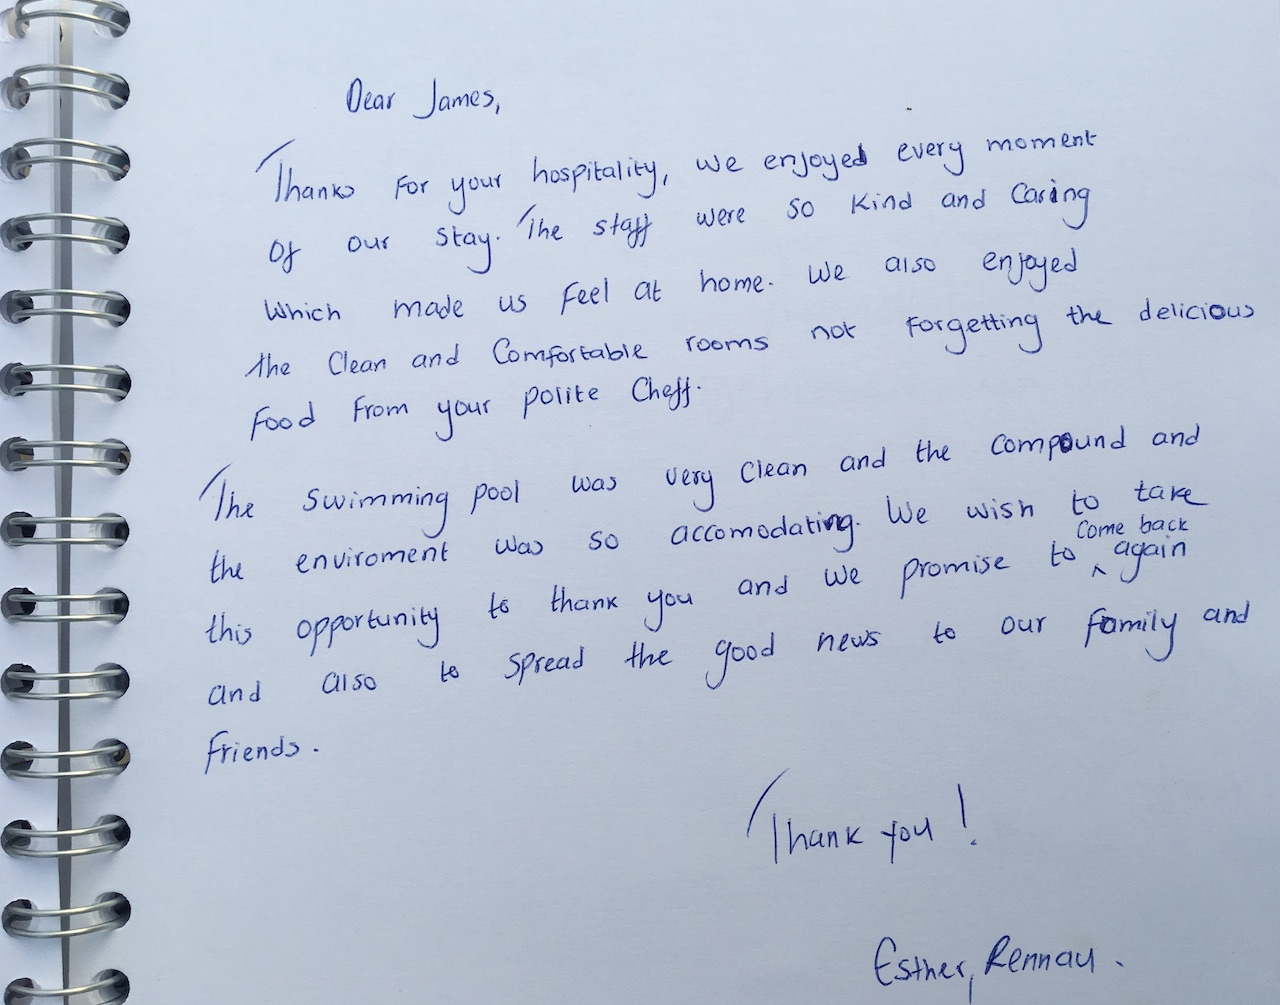 Dear James,
Thanks for your hospitality, we enjoyed every moment
of our stay. The staff were so kind and caring
which made us feel at home. We also enjoyed
the clean and comfortable rooms not forgetting the delicious
food from your polite cheff.
The swimming pool was very clean and the compound and
the enviroment was so accomodating. We wish to take
this opportunity to thank you and we promise to come back again
and also to spread the good news to our family and
friends.
Thank you!
Esther, Rennau.